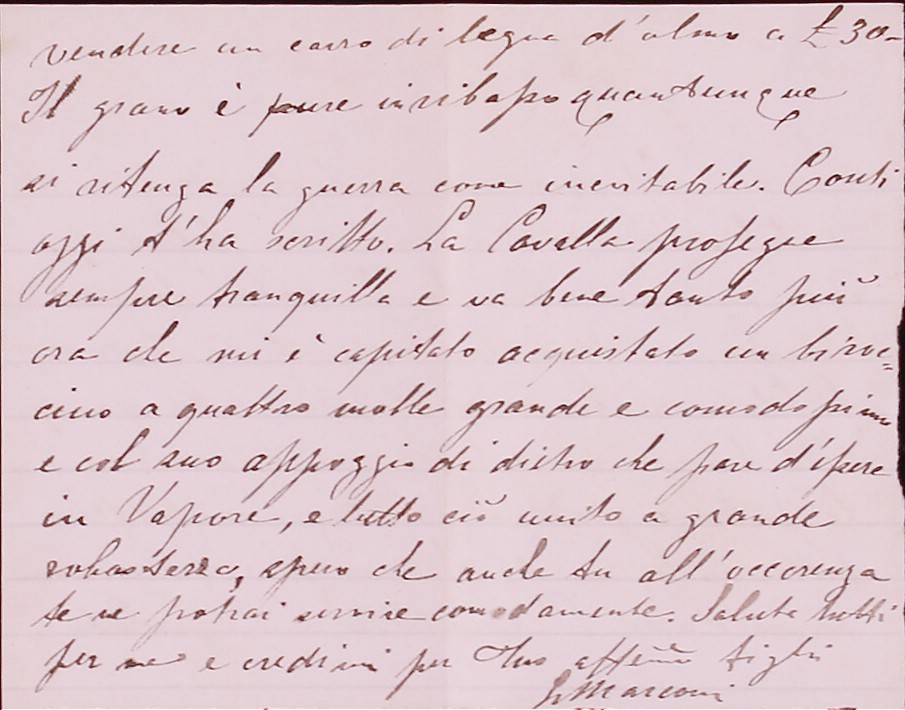 vendere un carro di legna d'olmo a £ 30-
Il grano è pure in ribasso quantunque
si ritenga la guerra come inevitabile. Conti
oggi t'ha scritto. La Cavalla prosegue
sempre tranquilla e va bene tanto più
ora che mi è capitato acquistato un biroc=
cino a quattro molle grande e comodissimo
e col suo appoggio di dietro che pare d'essere
in Vapore, e tutto ciò unito a grande
robustezza, spero che anche tu all'occorenza
te ne potrai servire comodamente. Saluta tutti
per me e credimi per tuo affemo figlio
G Marconi